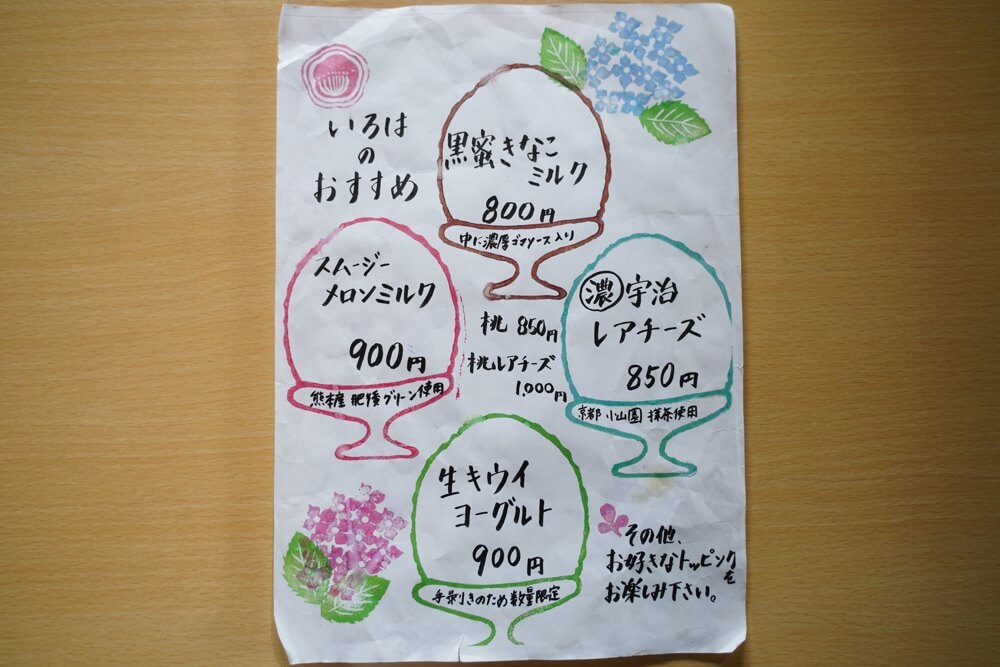 いろは
の
おすすめ
黒蜜きなこ
ミルク
800円
中に濃厚ゴマソース入り
スムージー
メロンミルク
900円
熊本産 肥後グリーン使用
桃 850円
桃レアチーズ
1,000円
濃宇治
レアチーズ
850円
京都 小山園 抹茶使用
生キウイ
ヨーグルト
900円
手剥きのため数量限定
その他、
お好きなトッピングを
お楽しみ下さい。